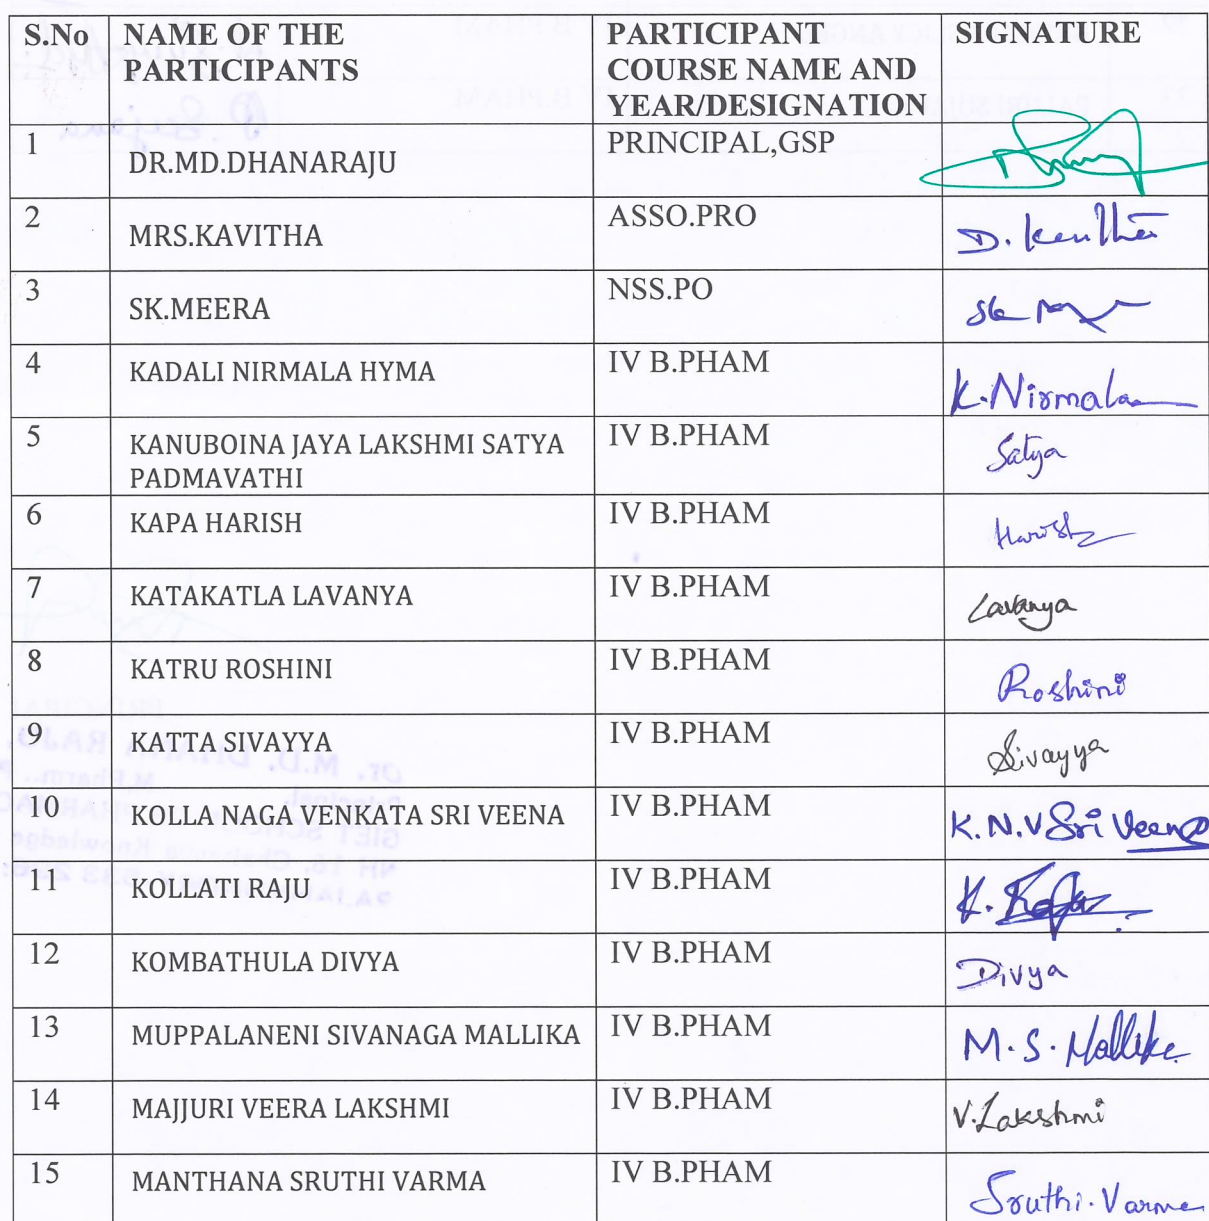 S.No NAME OF THE PARTICIPANT SIGNATURE
PARTICIPANTS COURSE NAME AND
YEAR/DESIGNATION
1 DR.MD.DHANARAJU PRINCIPAL,GSP
2 MRS.KAVITHA ASSO.PRO D. Kavitha
3 SK.MEERA NSS.PO
4 KADALI NIRMALA HYMA IV B.PHAM K.Nirmala
5 KANUBOINA JAYA LAKSHMI SATYA IV B.PHAM Satya
PADMAVATHI
6 KAPA HARISH IV B.PHAM Harish
7 KATAKATLA LAVANYA IV B.PHAM Lavanya
8 KATRU ROSHINI IV B.PHAM Roshini
9 KATTA SIVAYYA IV B.PHAM Sivayya
10 KOLLA NAGA VENKATA SRI VEENA IV B.PHAM K.N.V Sri Veena
11 KOLLATI RAJU IV B.PHAM K. Raju
12 KOMBATHULA DIVYA IV B.PHAM Divya
13 MUPPALANENI SIVANAGA MALLIKA IV B.PHAM M.S.Mallika
14 MAJJURI VEERA LAKSHMI IV B.PHAM V.Lakshmi
15 MANTHANA SRUTHI VARMA IV B.PHAM Sruthi.Varma